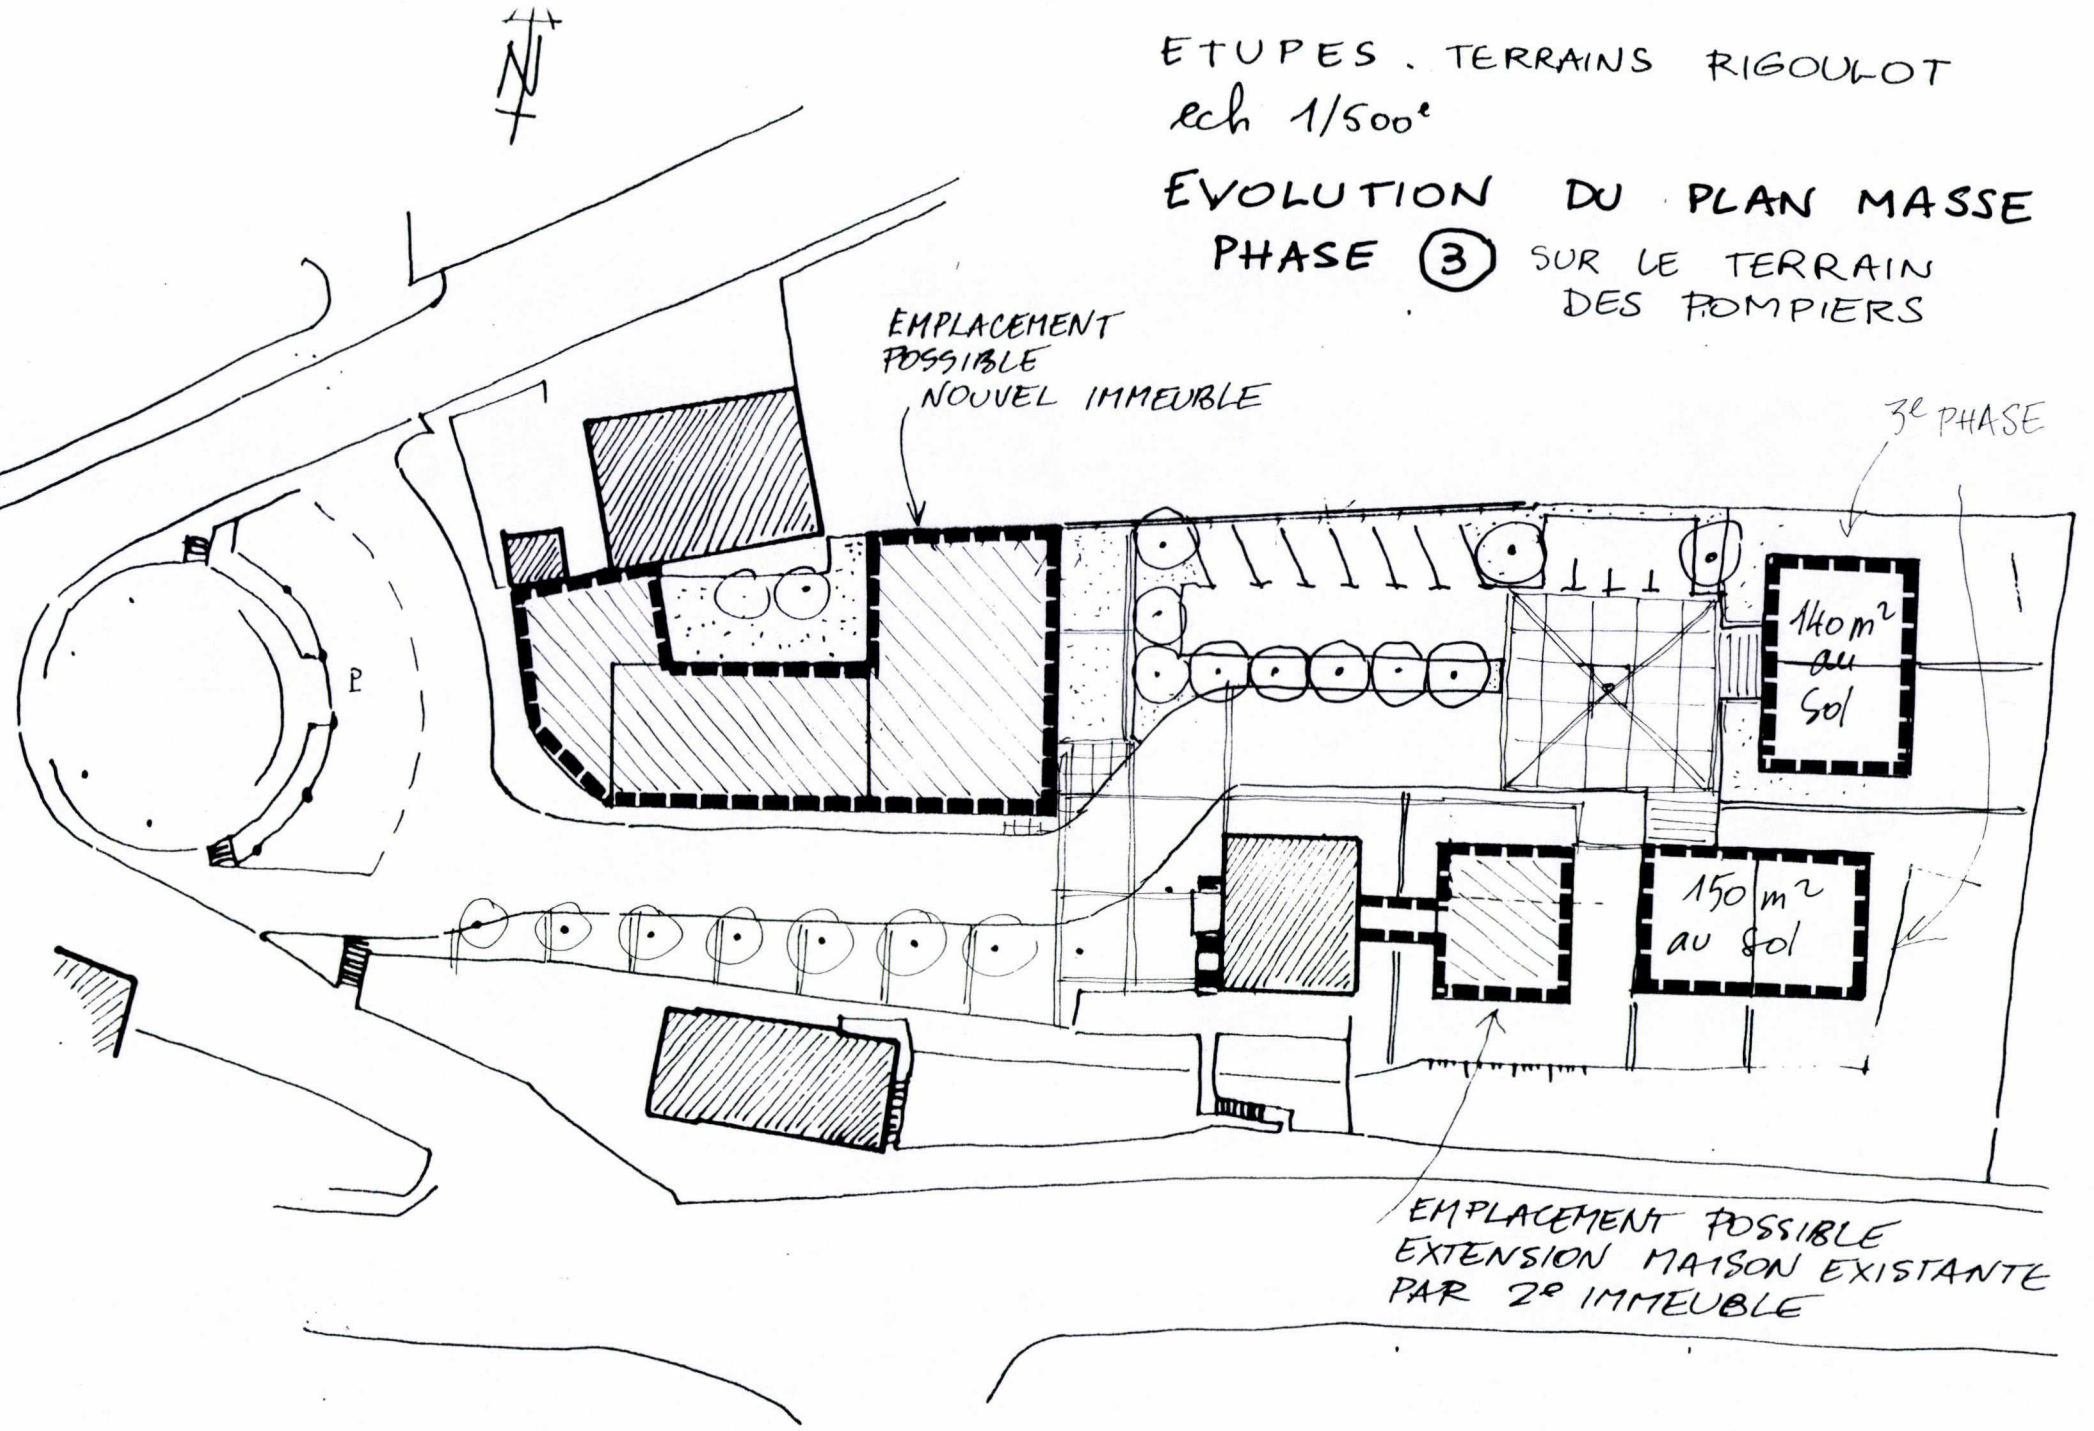 N
ETUPES. TERRAINS RIGOULOT
ech 1/500e
EVOLUTION DU PLAN MASSE
PHASE 3 SUR LE TERRAIN
DES POMPIERS
EMPLACEMENT
POSSIBLE
NOUVEL IMMEUBLE
3e PHASE
140 m²
au
Sol
P
150 m²
au Sol
EMPLACEMENT POSSIBLE
EXTENSION MAISON EXISTANTE
PAR 2e IMMEUBLE